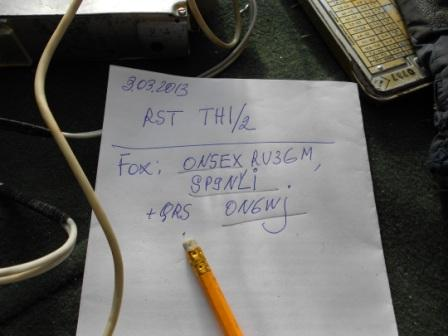 3.03.2013
RST TH1/2
Fox: ON5EX, RU3GM,
SP9NLI.
+QRS ON6Wj